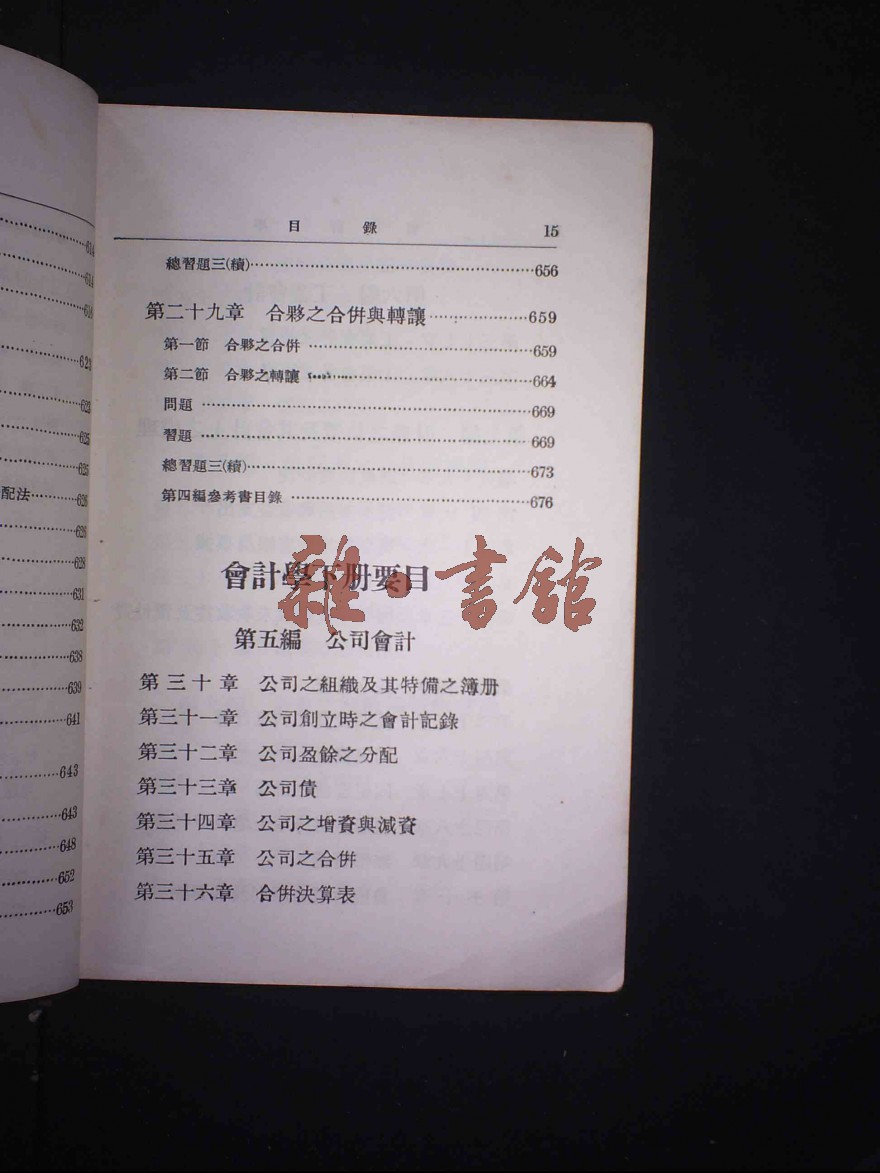 614
614
618
621
623
625
625
配法……626
626
628
631
632
638
639
641
643
643
648
652
653
目 錄 15
總習題三(續)……656
第二十九章 合夥之合併與轉讓……659
第一節 合夥之合併……659
第二節 合夥之轉讓……664
問題……669
習題……669
總習題三(續)……673
第四編參考書目錄……676
會計學下册要目
雜·書館
第五編 公司會計
第三十章 公司之組織及其特備之簿册
第三十一章 公司創立時之會計記錄
第三十二章 公司盈餘之分配
第三十三章 公司債
第三十四章 公司之增資與減資
第三十五章 公司之合併
第三十六章 合併決算表